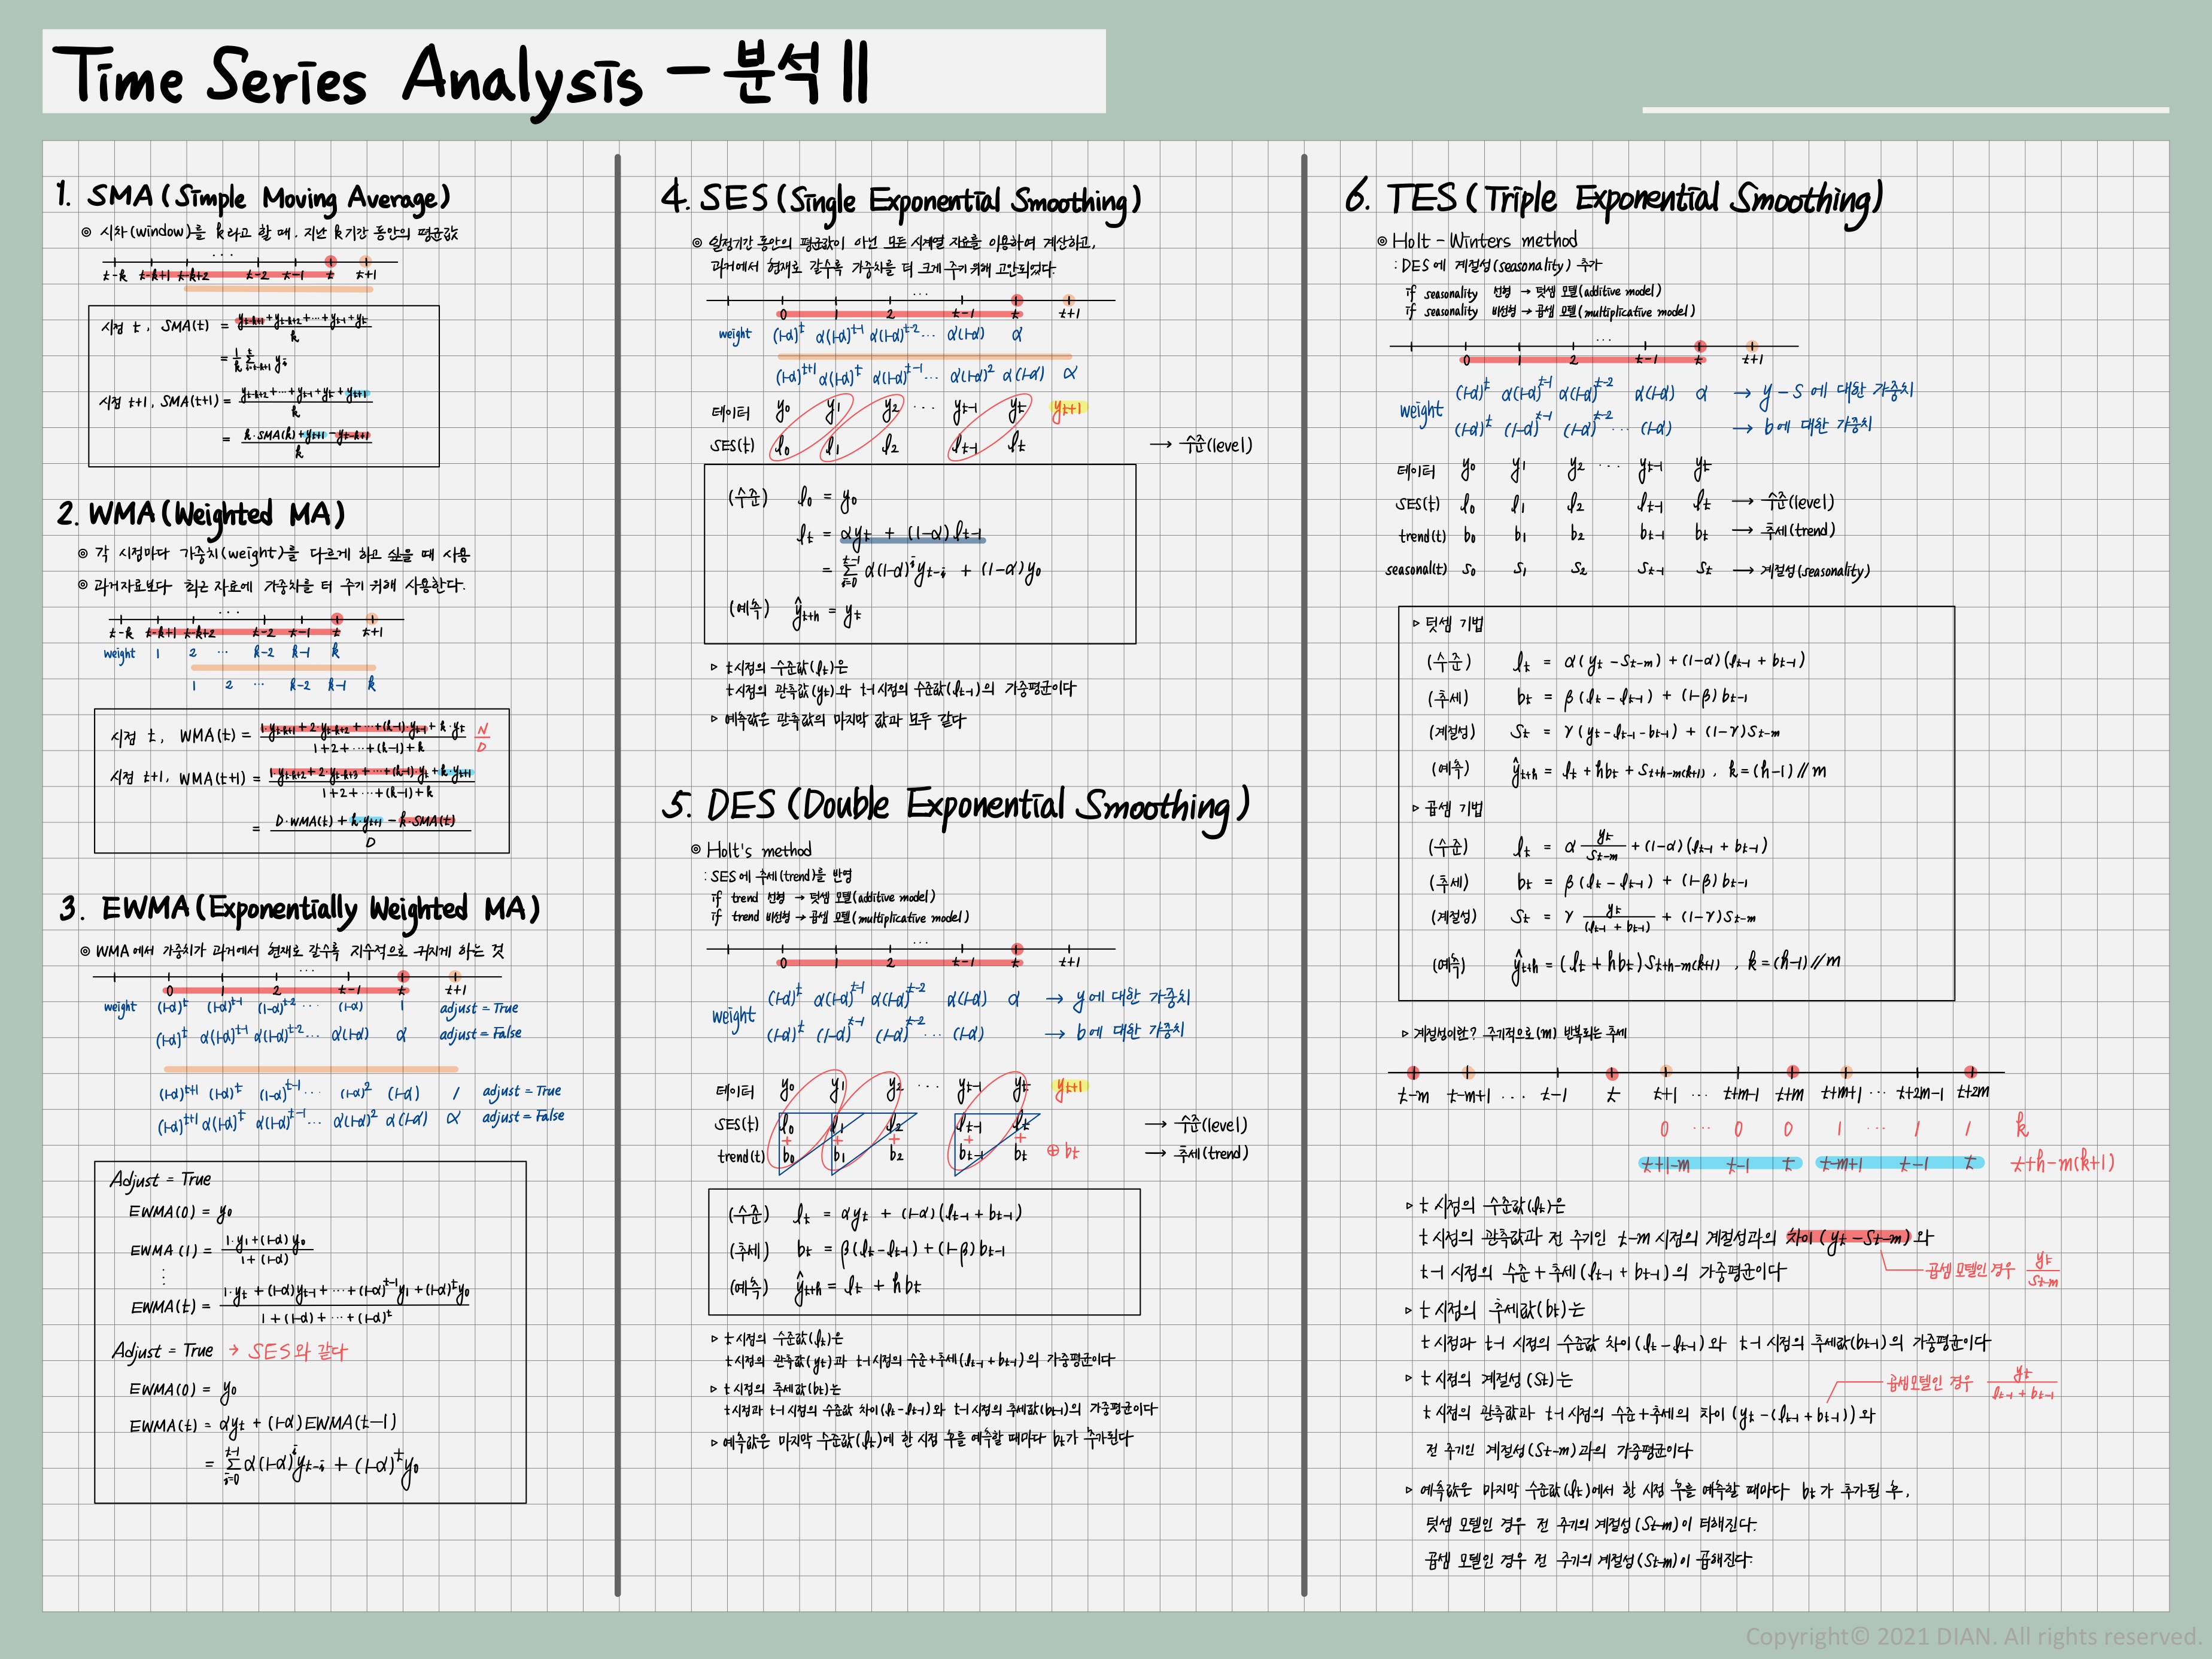 Time Series Analysis - 분석 II
1. SMA (Simple Moving Average)
◎ 시차(window)를 k라고 할 때, 지난 k기간 동안의 평균값
...
t-k t-k+1 t-k+2 t-2 t-1 t t+1
시점 t, SMA(t) = (y_{t-k+1} + y_{t-k+2} + ... + y_{t-1} + y_t) / k
= 1/k Σ_{i=t-k+1}^{t} y_i
시점 t+1, SMA(t+1) = (y_{t-k+2} + ... + y_{t-1} + y_t + y_{t+1}) / k
= (k·SMA(k) + y_{t+1} - y_{t-k+1}) / k
2. WMA (Weighted MA)
◎ 각 시점마다 가중치(weight)를 다르게 하고 싶을 때 사용
◎ 과거자료보다 최근 자료에 가중치를 더 주기 위해 사용한다.
...
t-k t-k+1 t-k+2 t-2 t-1 t t+1
weight 1 2 ... k-2 k-1 k
1 2 ... k-2 k-1 k
시점 t, WMA(t) = (1·y_{t-k+1} + 2·y_{t-k+2} + ... + (k-1)·y_{t-1} + k·y_t) / (1+2+...+(k-1)+k) N/D
시점 t+1, WMA(t+1) = (1·y_{t-k+2} + 2·y_{t-k+3} + ... + (k-1)·y_t + k·y_{t+1}) / (1+2+...+(k-1)+k)
= (D·WMA(t) + k·y_{t+1} - k·SMA(t)) / D
3. EWMA (Exponentially Weighted MA)
◎ WMA에서 가중치가 과거에서 현재로 갈수록 지수적으로 커지게 하는 것
...
0 1 2 t-1 t t+1
weight (1-α)^t (1-α)^{t-1} (1-α)^{t-2} ... (1-α) 1 adjust = True
(1-α)^t α(1-α)^{t-1} α(1-α)^{t-2} ... α(1-α) α adjust = False
(1-α)^{t+1} (1-α)^t (1-α)^{t-1} ... (1-α)^2 (1-α) 1 adjust = True
(1-α)^{t+1} α(1-α)^t α(1-α)^{t-1} ... α(1-α)^2 α(1-α) α adjust = False
Adjust = True
EWMA(0) = y_0
EWMA(1) = (1·y_1 + (1-α)y_0) / (1 + (1-α))
⋮
EWMA(t) = (1·y_t + (1-α)y_{t-1} + ... + (1-α)^{t-1}y_1 + (1-α)^t y_0) / (1 + (1-α) + ... + (1-α)^t)
Adjust = True → SES와 같다
EWMA(0) = y_0
EWMA(t) = αy_t + (1-α)EWMA(t-1)
= Σ_{i=0}^{t-1} α(1-α)^i y_{t-i} + (1-α)^t y_0
4. SES (Single Exponential Smoothing)
◎ 일정기간 동안의 평균값이 아닌 모든 시계열 자료를 이용하여 계산하고,
과거에서 현재로 갈수록 가중치를 더 크게 주기 위해 고안되었다.
...
0 1 2 t-1 t t+1
weight (1-α)^t α(1-α)^{t-1} α(1-α)^{t-2} ... α(1-α) α
(1-α)^{t+1} α(1-α)^t α(1-α)^{t-1} ... α(1-α)^2 α(1-α) α
데이터 y_0 y_1 y_2 ... y_{t-1} y_t y_{t+1}
SES(t) l_0 l_1 l_2 l_{t-1} l_t → 수준(level)
(수준) l_0 = y_0
l_t = αy_t + (1-α)l_{t-1}
= Σ_{i=0}^{t-1} α(1-α)^i y_{t-i} + (1-α)y_0
(예측) ŷ_{t+h} = y_t
▷ t시점의 수준값(l_t)은
t시점의 관측값(y_t)와 t-1시점의 수준값(l_{t-1})의 가중평균이다
▷ 예측값은 관측값의 마지막 값과 모두 같다
5. DES (Double Exponential Smoothing)
◎ Holt's method
: SES에 추세(trend)를 반영
if trend 선형 → 덧셈 모델(additive model)
if trend 비선형 → 곱셈 모델(multiplicative model)
...
0 1 2 t-1 t t+1
weight (1-α)^t α(1-α)^{t-1} α(1-α)^{t-2} α(1-α) α → y에 대한 가중치
(1-α)^t (1-α)^{t-1} (1-α)^{t-2} ... (1-α) → b에 대한 가중치
데이터 y_0 y_1 y_2 ... y_{t-1} y_t y_{t+1}
SES(t) l_0 l_1 l_2 l_{t-1} l_t → 수준(level)
+ + + + +
trend(t) b_0 b_1 b_2 b_{t-1} b_t ⊕ b_t → 추세(trend)
(수준) l_t = αy_t + (1-α)(l_{t-1} + b_{t-1})
(추세) b_t = β(l_t - l_{t-1}) + (1-β)b_{t-1}
(예측) ŷ_{t+h} = l_t + hb_t
▷ t시점의 수준값(l_t)은
t시점의 관측값(y_t)과 t-1시점의 수준+추세(l_{t-1} + b_{t-1})의 가중평균이다
▷ t시점의 추세값(b_t)는
t시점과 t-1시점의 수준값 차이(l_t - l_{t-1})와 t-1시점의 추세값(b_{t-1})의 가중평균이다
▷ 예측값은 마지막 수준값(l_t)에 한 시점 후를 예측할 때마다 b_t가 추가된다
6. TES (Triple Exponential Smoothing)
◎ Holt - Winters method
: DES에 계절성(seasonality) 추가
if seasonality 선형 → 덧셈 모델(additive model)
if seasonality 비선형 → 곱셈 모델(multiplicative model)
...
0 1 2 t-1 t t+1
weight (1-α)^t α(1-α)^{t-1} α(1-α)^{t-2} α(1-α) α → y - s에 대한 가중치
(1-α)^t (1-α)^{t-1} (1-α)^{t-2} ... (1-α) → b에 대한 가중치
데이터 y_0 y_1 y_2 ... y_{t-1} y_t
SES(t) l_0 l_1 l_2 l_{t-1} l_t → 수준(level)
trend(t) b_0 b_1 b_2 b_{t-1} b_t → 추세(trend)
seasonal(t) s_0 s_1 s_2 s_{t-1} s_t → 계절성(seasonality)
▷ 덧셈 기법
(수준) l_t = α(y_t - s_{t-m}) + (1-α)(l_{t-1} + b_{t-1})
(추세) b_t = β(l_t - l_{t-1}) + (1-β)b_{t-1}
(계절성) s_t = γ(y_t - l_{t-1} - b_{t-1}) + (1-γ)s_{t-m}
(예측) ŷ_{t+h} = l_t + hb_t + s_{t+h-m(k+1)}, k = (h-1)//m
▷ 곱셈 기법
(수준) l_t = α y_t/s_{t-m} + (1-α)(l_{t-1} + b_{t-1})
(추세) b_t = β(l_t - l_{t-1}) + (1-β)b_{t-1}
(계절성) s_t = γ y_t/(l_{t-1} + b_{t-1}) + (1-γ)s_{t-m}
(예측) ŷ_{t+h} = (l_t + hb_t)s_{t+h-m(k+1)}, k = (h-1)//m
▷ 계절성이란? 주기적으로(m) 반복되는 추세
t-m t-m+1 ... t-1 t t+1 ... t+m-1 t+m t+m+1 ... t+2m-1 t+2m
0 ... 0 0 1 ... 1 1 k
t+1-m t-1 t t-m+1 t-1 t t+h-m(k+1)
▷ t시점의 수준값(l_t)은
t시점의 관측값과 전 주기인 t-m시점의 계절성과의 차이(y_t - s_{t-m})와
t-1시점의 수준+추세(l_{t-1} + b_{t-1})의 가중평균이다
곱셈 모델인 경우 y_t/s_{t-m}
▷ t시점의 추세값(b_t)는
t시점과 t-1시점의 수준값 차이(l_t - l_{t-1})와 t-1시점의 추세값(b_{t-1})의 가중평균이다
▷ t시점의 계절성(s_t)는
곱셈모델인 경우 y_t/(l_{t-1} + b_{t-1})
t시점의 관측값과 t-1시점의 수준+추세의 차이(y_t - (l_{t-1} + b_{t-1}))와
전 주기인 계절성(s_{t-m})과의 가중평균이다
▷ 예측값은 마지막 수준값(l_t)에서 한 시점 후를 예측할 때마다 b_t가 추가된 후,
덧셈 모델인 경우 전 주기의 계절성(s_{t-m})이 더해진다.
곱셈 모델인 경우 전 주기의 계절성(s_{t-m})이 곱해진다.
Copyright© 2021 DIAN. All rights reserved.